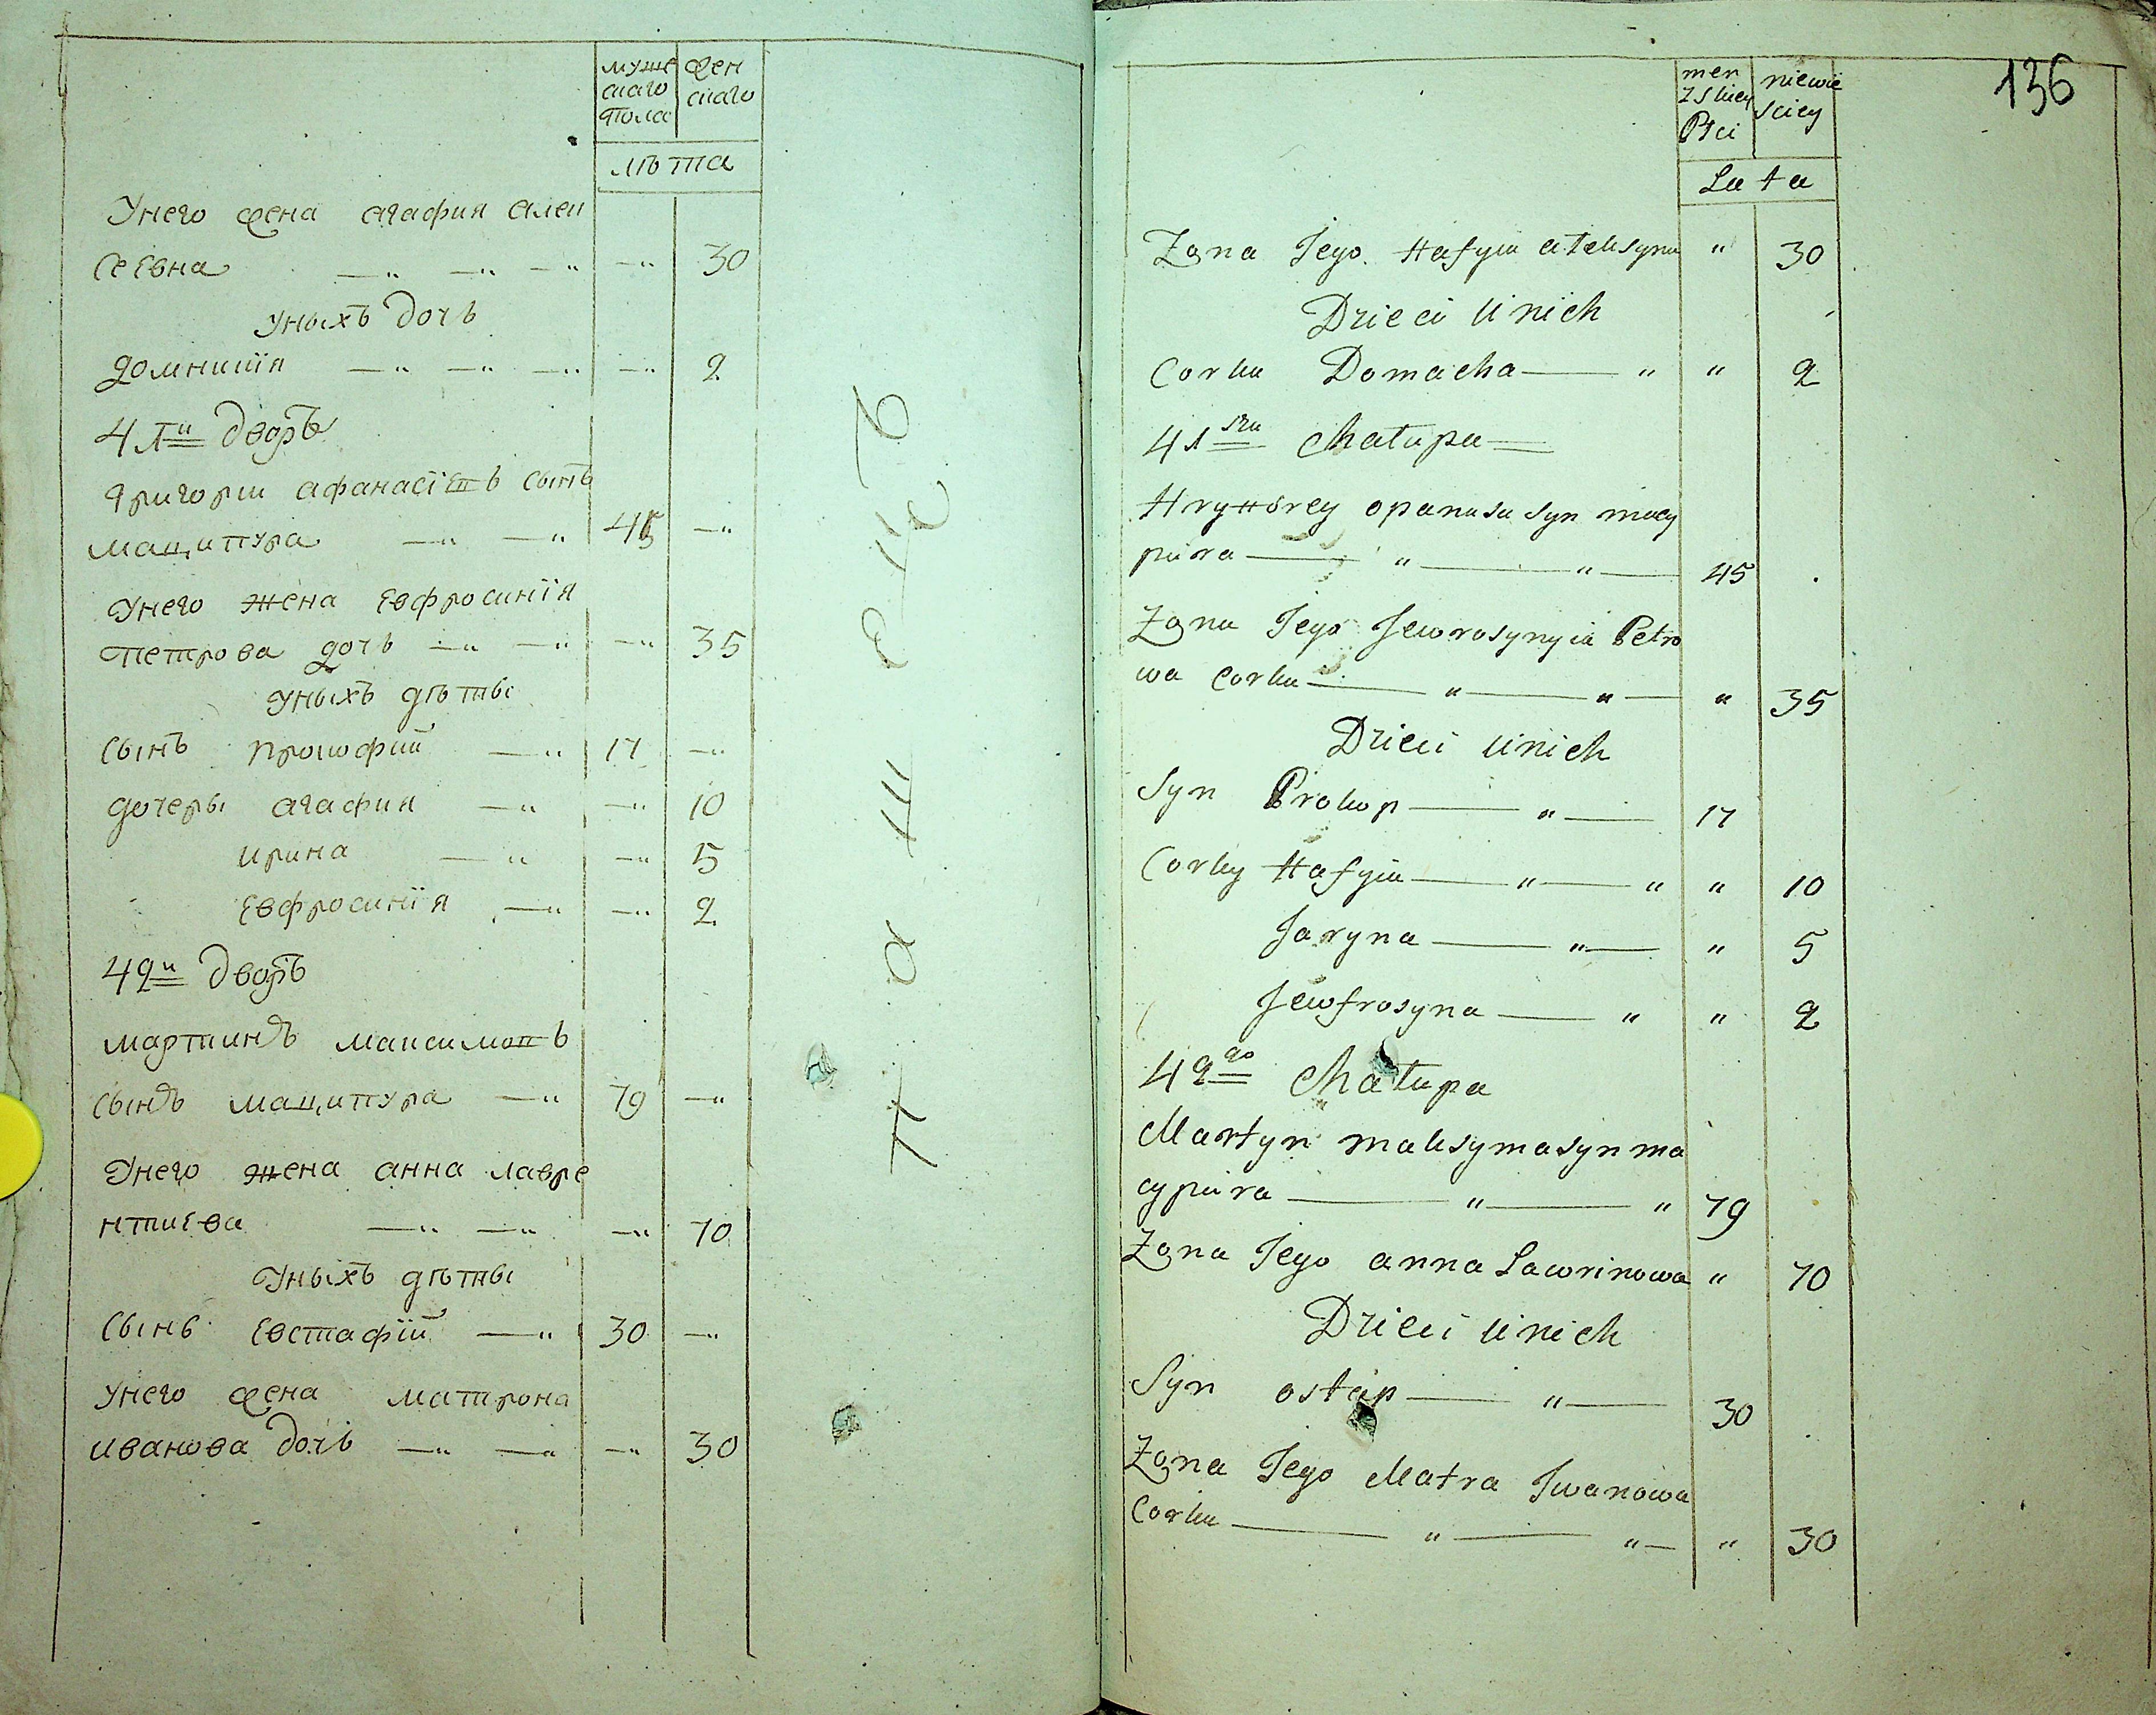 муже
скаго
пола
жен
скаго
лѣта
Унего жена агафия алек
сеевна —„ —„ —„ —„ 30
уныхъ дочь
домникiя —„ —„ —„ —„ 2
41й дворъ
григории афанасiевъ сынъ
маципура —„ —„ 45 —„
унего жена евфросинiя
петрова дочь —„ —„ —„ 35
уныхъ дѣты
сынъ прокофий —„ 17 —„
дочеры агафия —„ —„ 10
ирина —„ —„ 5
Евфросинiя —„ —„ 2
42й дворъ
мартинъ максимовъ
сынъ маципура —„ 79 —„
Унего жена анна лавре
нтиева —„ —„ —„ 70
Уныхъ дѣты
сынъ Евстафiй —„ 30 —„
унего жена матрона
иванова дочь —„ —„ —„ 30
136
men
zskiey
Płci
niewie
sciey
Lata
Zona Jego Hafyia ateksyna „ 30
Dzieci unich
Corka Domacha — „ „ 2
41sza Chatupa —
Hryhorey opanasa syn macy
pura — „ — „ — 45
Zona Jego Jewrosynyia Petro
wa Corka — „ — „ — „ 35
Dzieci unich
Syn Prokop — „ — 17
Corky Hafyia — „ — „ „ 10
Jaryna — „ — „ 5
Jewfrosyna — „ „ 2
42go Chatupa
Martyn maksyma syn ma
cypura — „ — „ 79
Zona Jego anna Lawrinowa „ 70
Dzieci unich
Syn ostap — „ — 30
Zona Jego Matra Iwanowa
Corka — „ — „ — „ 30